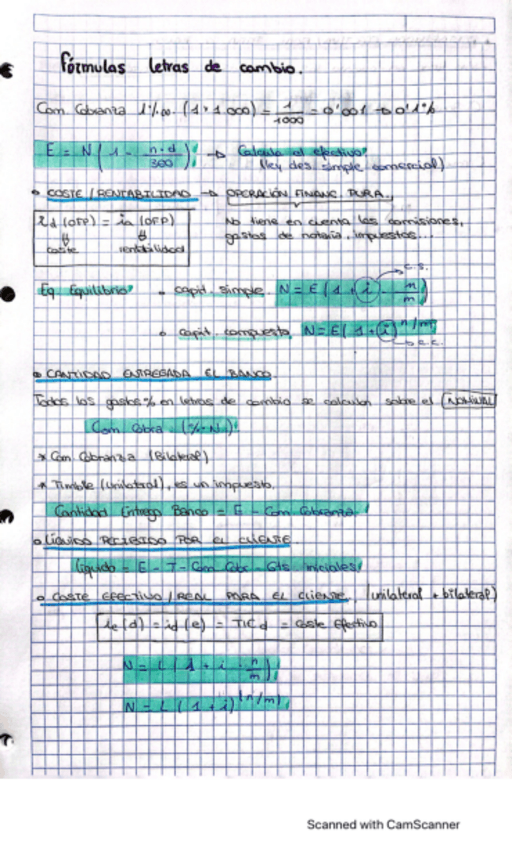 fórmulas letras de cambio.
Com. Cobranza 1‰. (1 x 1.000) = 1/1000 = 0'001 → 0'1%
E = N (1 - n·d/360) → Calcula el efectivo
(ley des. simple comercial)
• COSTE / RENTABILIDAD → OPERACIÓN FINANC. PURA.
id (OFP) = ia (OFP)
No tiene en cuenta las comisiones,
coste rentabilidad
gastos de notaria, impuestos...
Eq. Equilibrio
c.s.
• capit. simple. N = E (1 + i · n/m)
• capit. compuesta. N = E (1 + i)^n/m
c.c.
• CANTIDAD ENTREGADA EL BANCO.
Todos los gastos % en letras de cambio se calculan sobre el NOMINAL
Com Cobra (% · N)
* Com. Cobranza (Bilateral)
* Timble (unilateral), es un impuesto.
Cantidad Entrega Banco = E - Com Cobranza.
• LÍQUIDO RECIBIDO POR EL CLIENTE.
líquido = E - T - Com Cobr - Gts iniciales
• COSTE EFECTIVO / REAL PARA EL CLIENTE. (unilateral + bilateral)
ie (d) = id (e) = TIC d = Coste Efectivo
N = L (1 + i · n/m)
N = L (1 + i)^(n/m)
Scanned with CamScanner